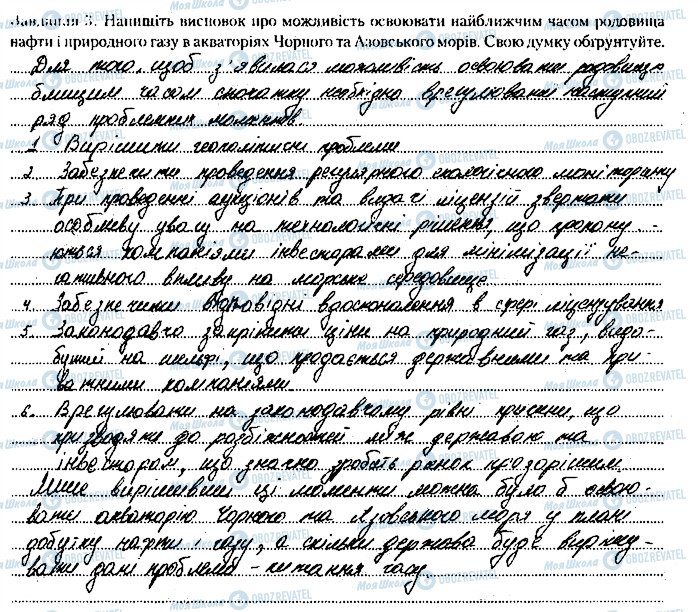 Завдання 3. Напишіть висновок про можливість освоювати найближчим часом родовища
нафти і природного газу в акваторіях Чорного та Азовського морів. Свою думку обґрунтуйте.
Для того, щоб з'явилася можливість освоювати родовище
ближчим часом спочатку необхідно врегулювати наступний
ряд проблемних моментів
1 Вирішити геополітичні проблеми
2. Забезпечити проведення регулярного екологічного моніторингу
3. При проведенні аукціонів та видачі ліцензій звертати
особливу увагу на технологічні рішення, що пропону-
ються компаніями інвесторами для мінімізації не-
гативного впливу на морське середовище
4. Забезпечити відповідні вдосконалення в сфері ліцензування
5. Законодавчо закріпити ціни на природний газ, видо-
бутий на шельфі, що продається державними та при-
ватними компаніями
6. Врегулювати на законодавчому рівні причини, що
призводять до розбіжностей між державою та
інвестором, що значно зробить ринок прозорішим.
Лише вирішивши ці моменти можна було б освою-
вати акваторію Чорного та Азовського моря у плані
добутку нафти і газу, а скільки держава буде вирішу-
вати дані проблеми - питання часу.